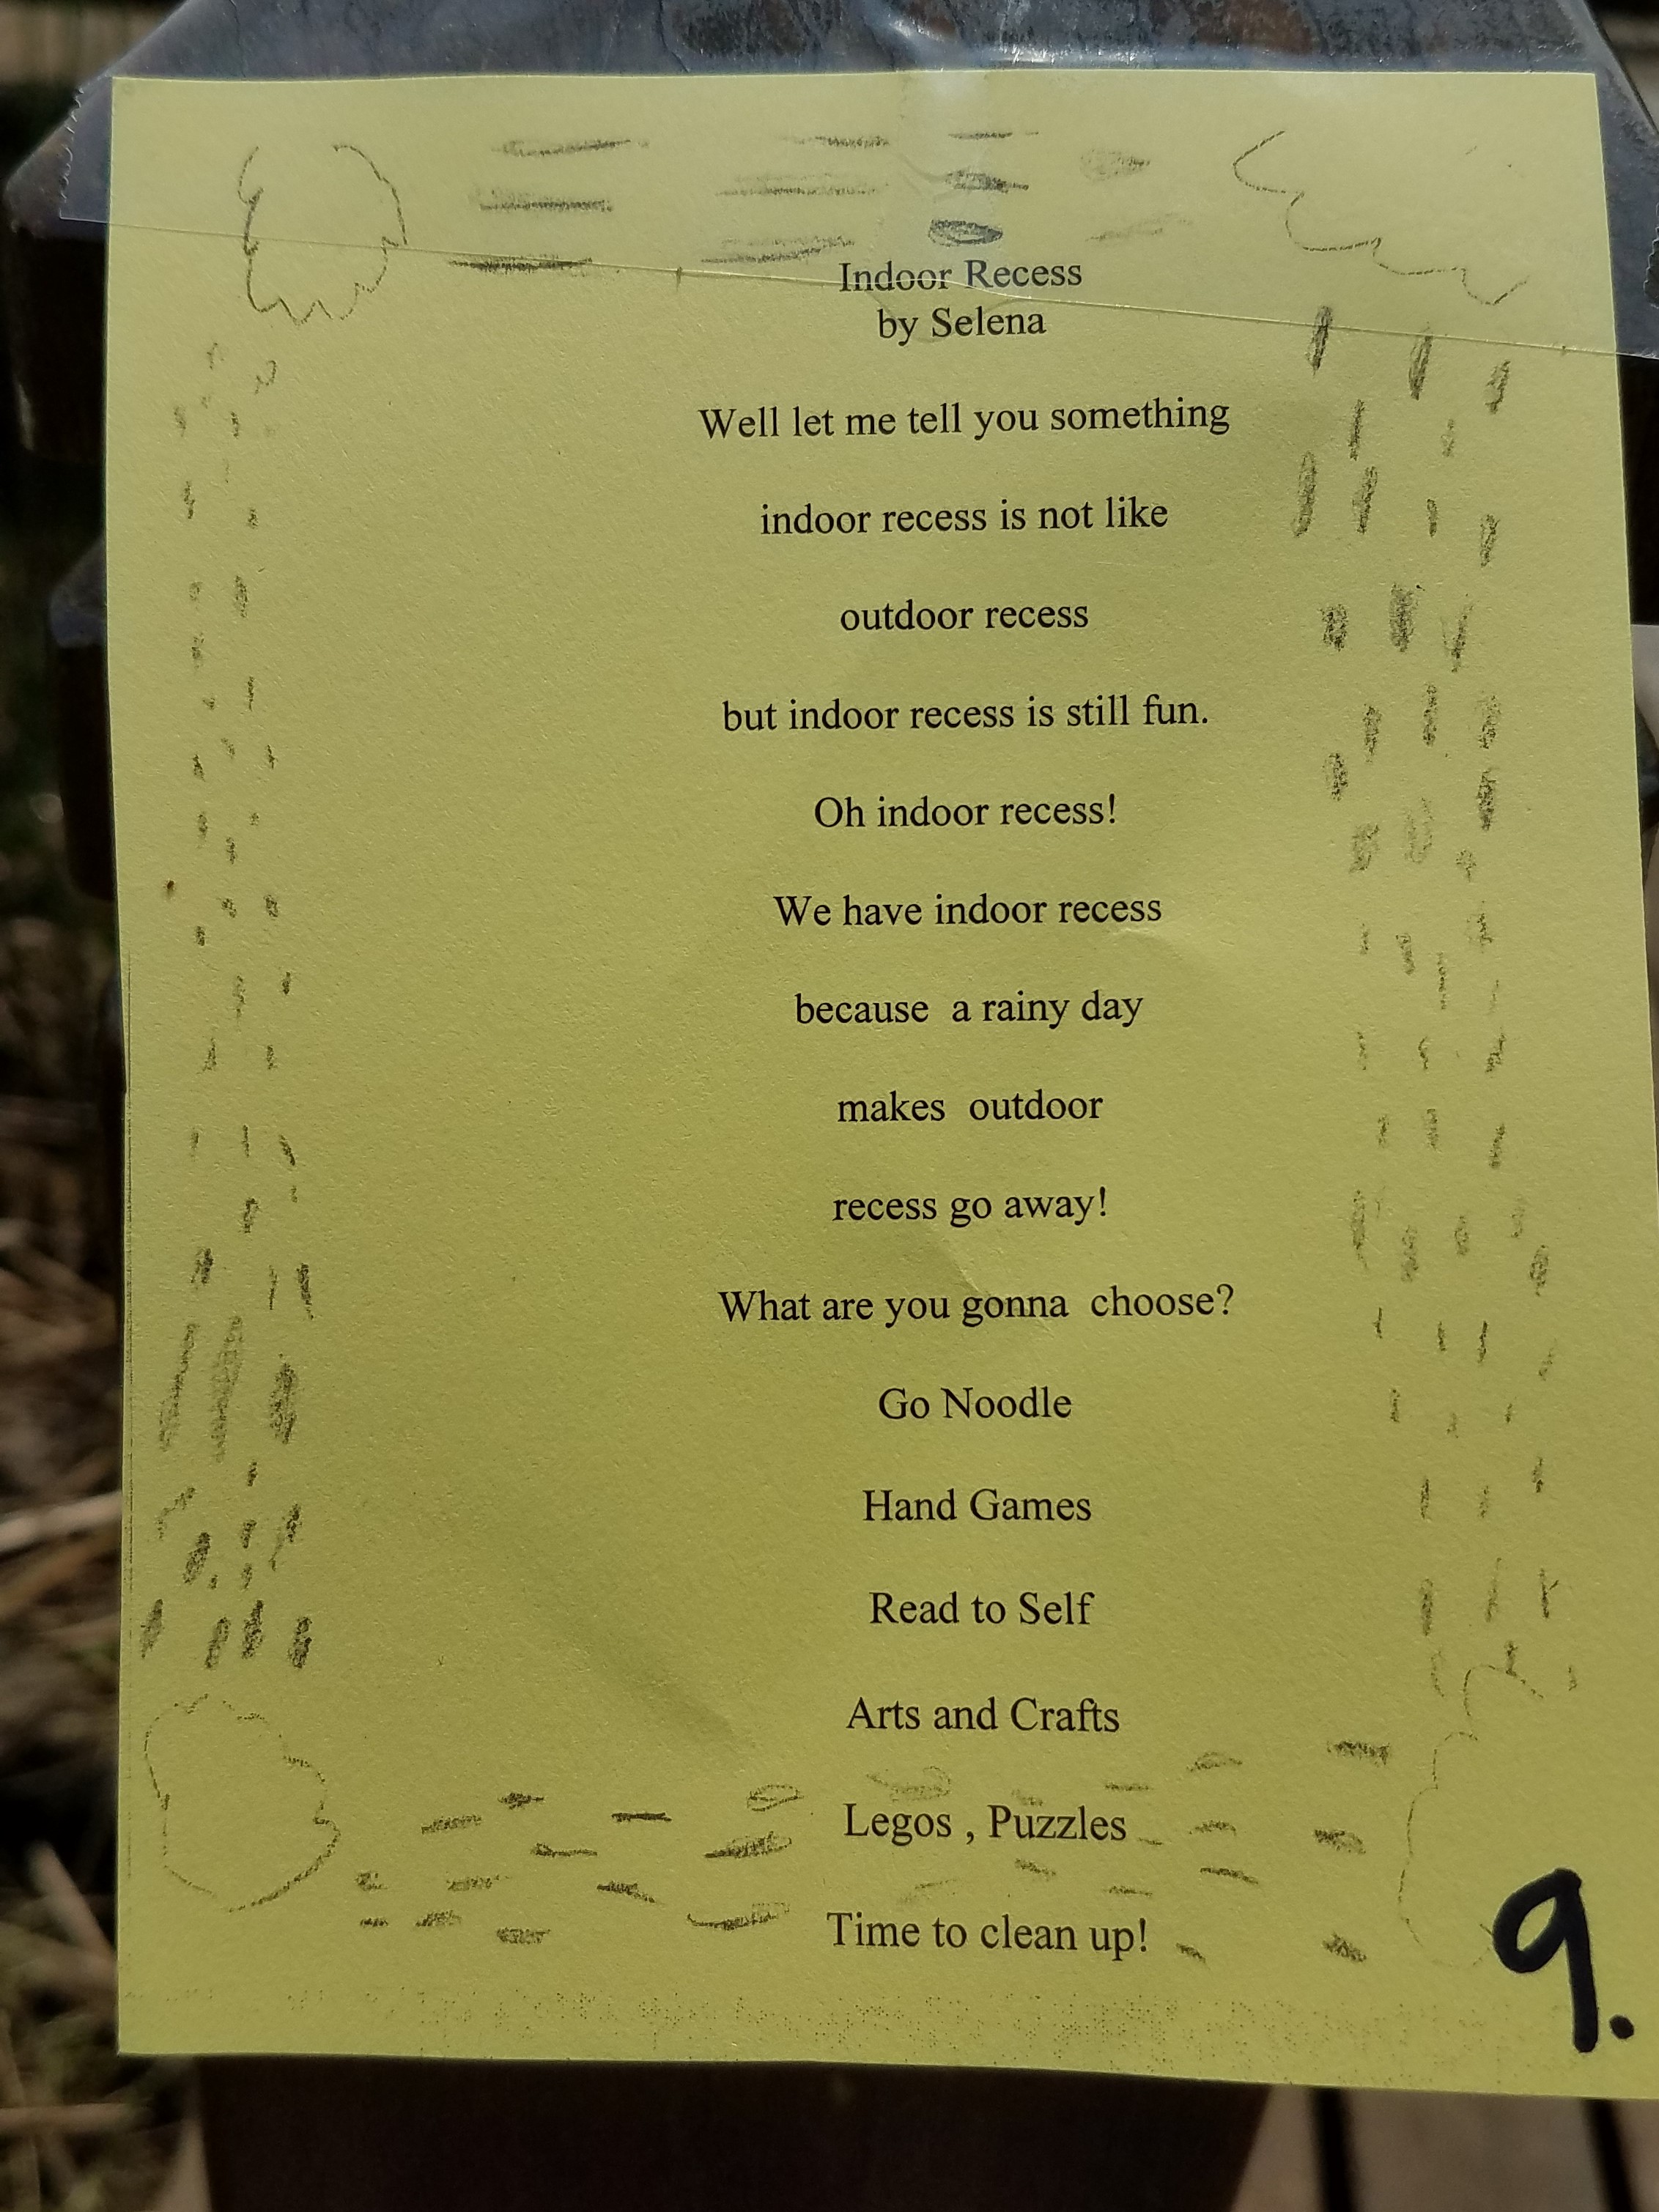 Indoor Recess
by Selena
Well let me tell you something
indoor recess is not like
outdoor recess
but indoor recess is still fun.
Oh indoor recess!
We have indoor recess
because  a rainy day
makes  outdoor
recess go away!
What are you gonna  choose?
Go Noodle
Hand Games
Read to Self
Arts and Crafts
Legos , Puzzles
Time to clean up!
9.